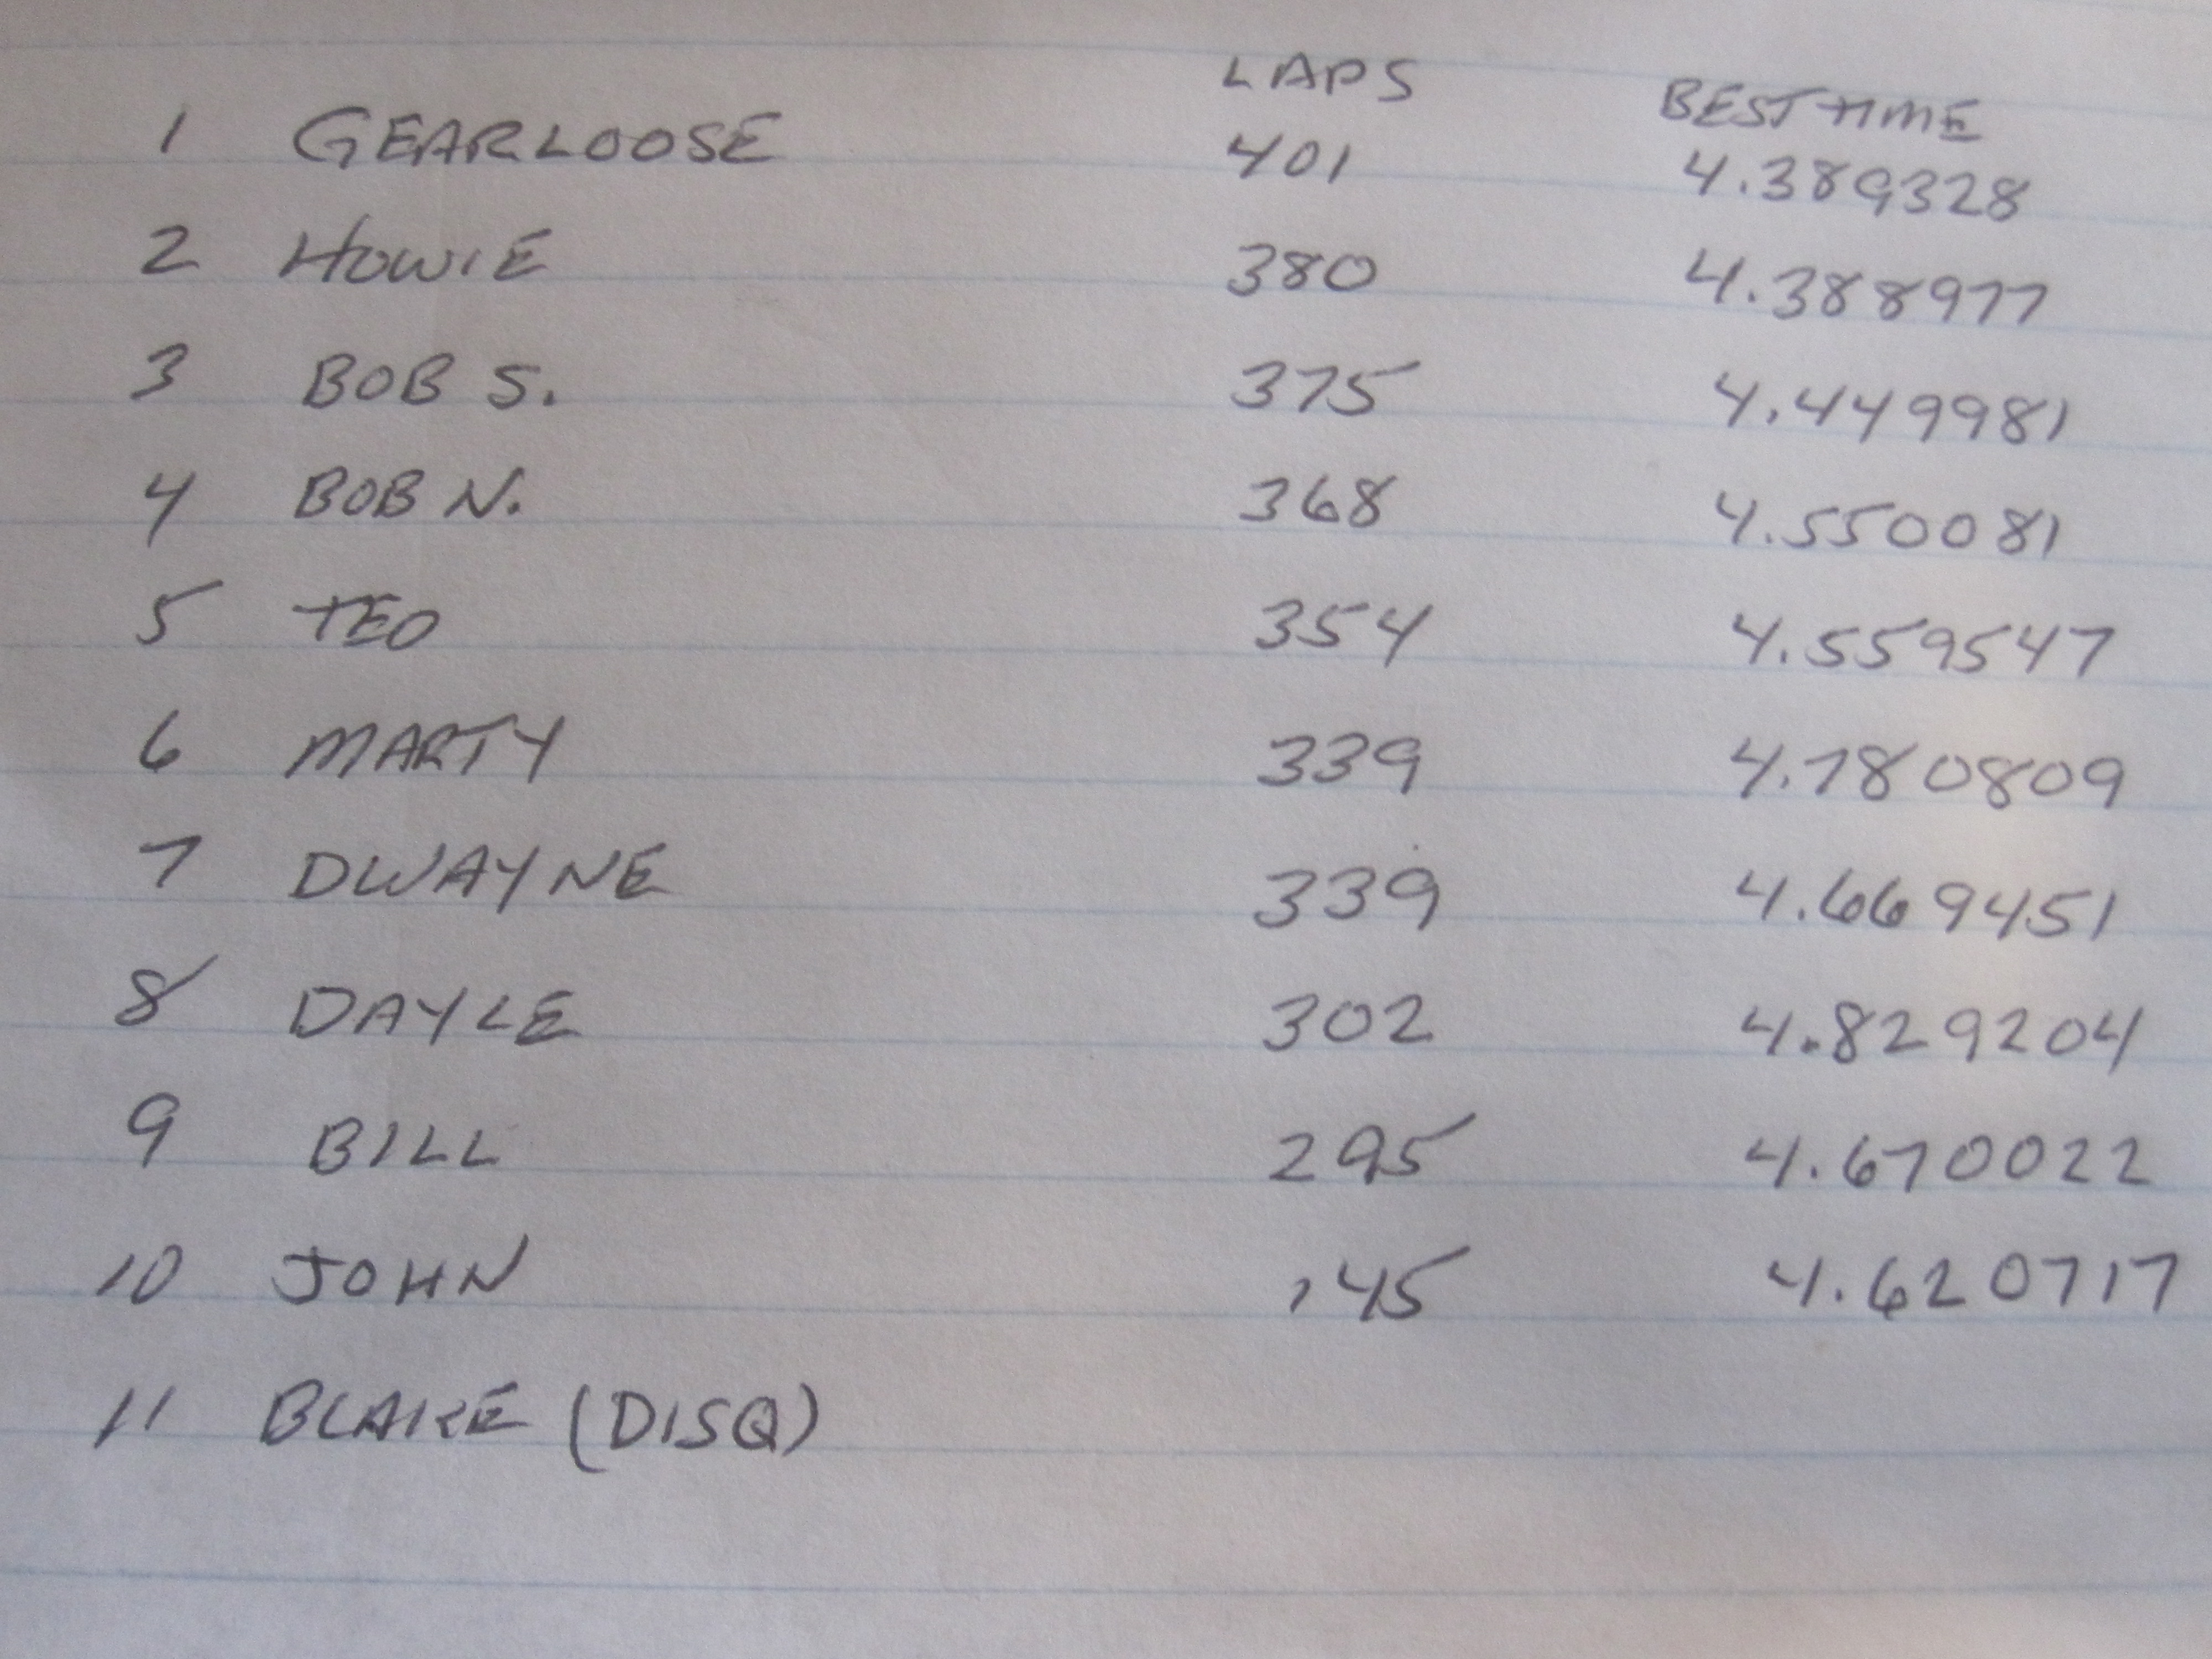 LAPS BEST TIME
1 GEARLOOSE 401 4.389328
2 HOWIE 380 4.388977
3 BOB S. 375 4.449981
4 BOB N. 368 4.550081
5 TEO 354 4.559547
6 MARTY 339 4.780809
7 DWAYNE 339 4.669451
8 DAYLE 302 4.829204
9 BILL 295 4.670022
10 JOHN 145 4.620717
11 BLAKE (DISQ)